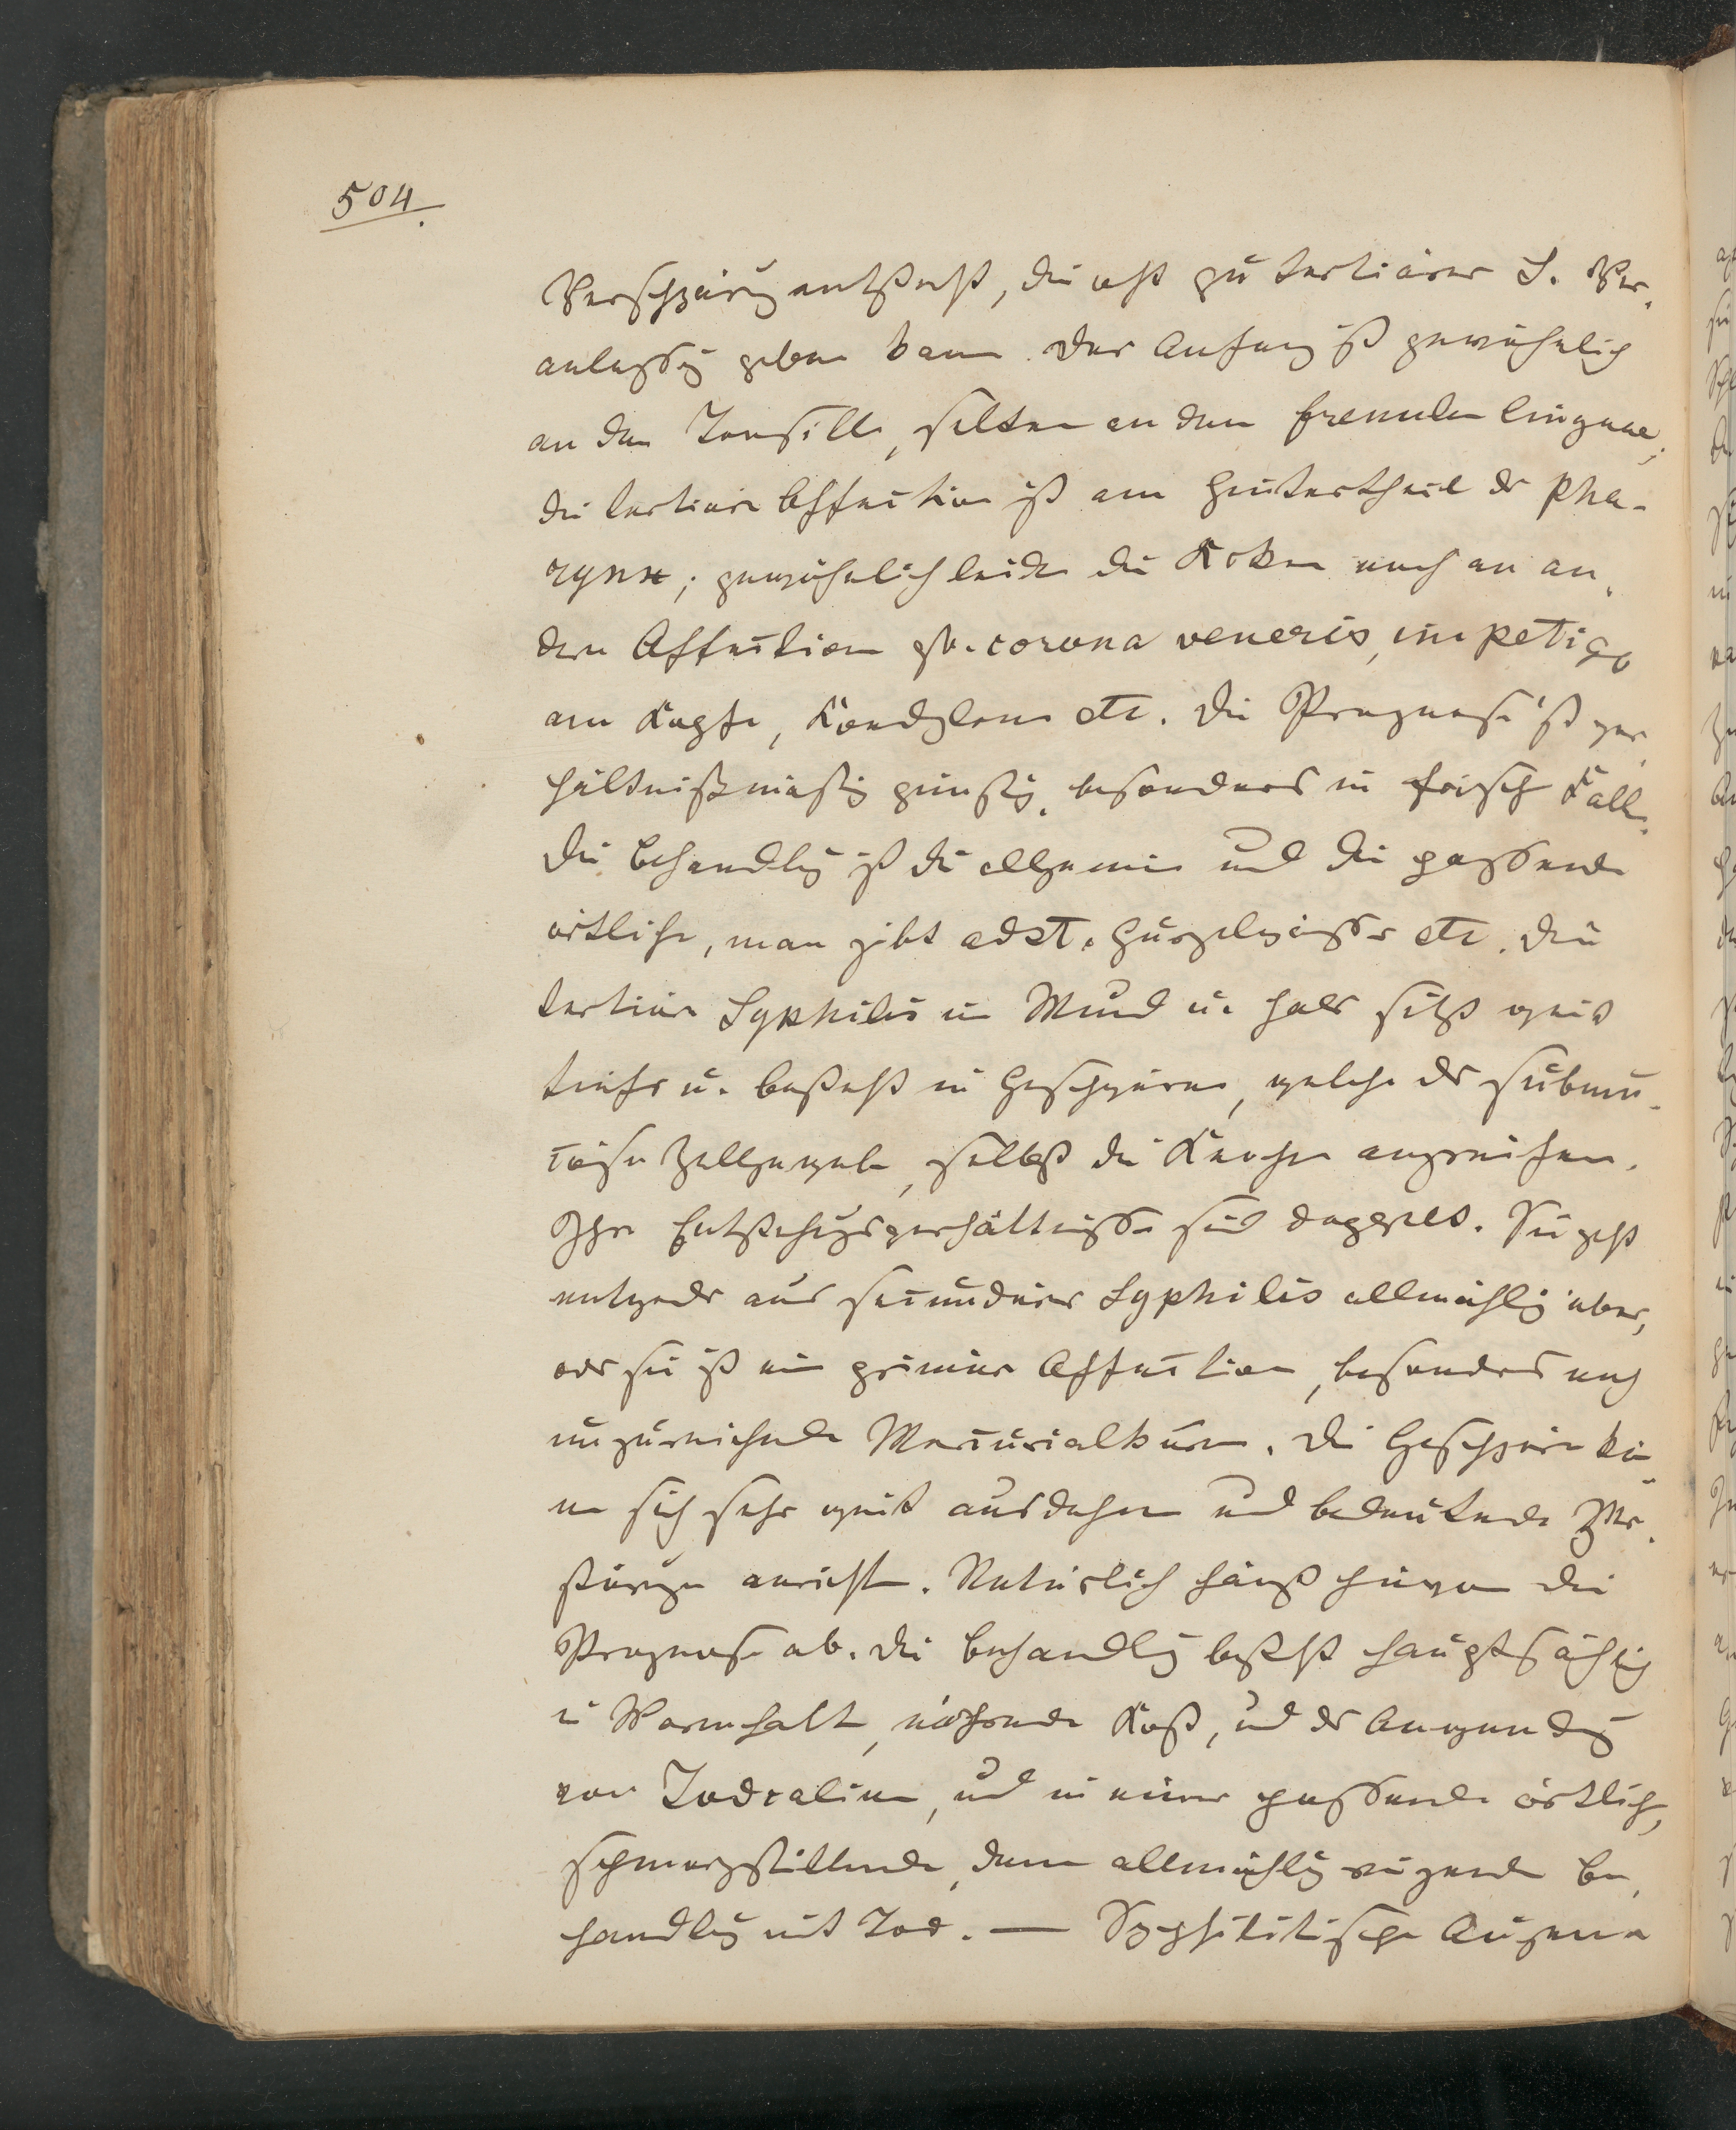 504.
Verschwärung entsteht, die oft zu tertiärer S. Ver-
anlassung geben kann. Der Anfang ist gewöhnlich
an den Tonsillen, selten an dem frenulum linguae;
die tertiäre Affection ist am Hintertheil der Pha-
rynx; gewöhnlich leiden die Kranken noch an an-
dern Affectionen zb. corona veneris, impetigo
am Kopfe, Kondylome etc. Die Prognose ist ver-
hältnißmäßig günstig, besonders in frischen Fällen.
Die Behandlung ist die allgemeine und die passende
örtliche, man gibt adst. Gurgelwässer etc. Die
tertiäre Syphilis in Mund u. Hals sitzt weit
tiefer u. besteht in Geschwüren, welche das submu-
cöse Zellgewebe, selbst die Knochen angreifen.
Ihre Entstehungsverhältnisse sind doppelt. Sie geht
entweder aus secundärer Syphilis allmählig über,
oder sie ist eine primäre Affection, besonders nach
unzureichenden Mercurialkuren. Die Geschwüre kön-
nen sich sehr weit ausdehnen und bedeutende Zer-
störungen anrichten. Natürlich hängt hievon die
Prognose ab. Die Behandlung besteht hauptsächlich
in Warmhalten, nährender Kost, und der Anwendung
von Jodcalium, und in einer passenden örtlichen,
schmerzstillenden, dann allmählig reizenden Be-
handlung mit Jod. — Syphilitische Augen